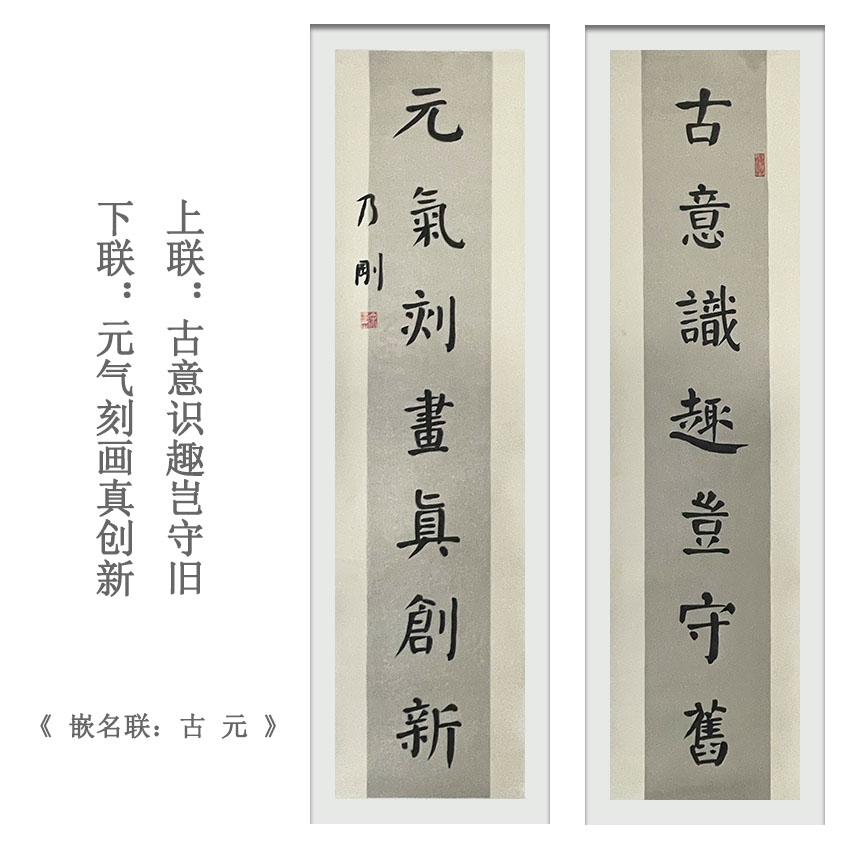 古意識趣豈守舊
元氣刻畫眞創新
乃剛
上联：古意识趣岂守旧
下联：元气刻画真创新
《 嵌名联：古 元 》